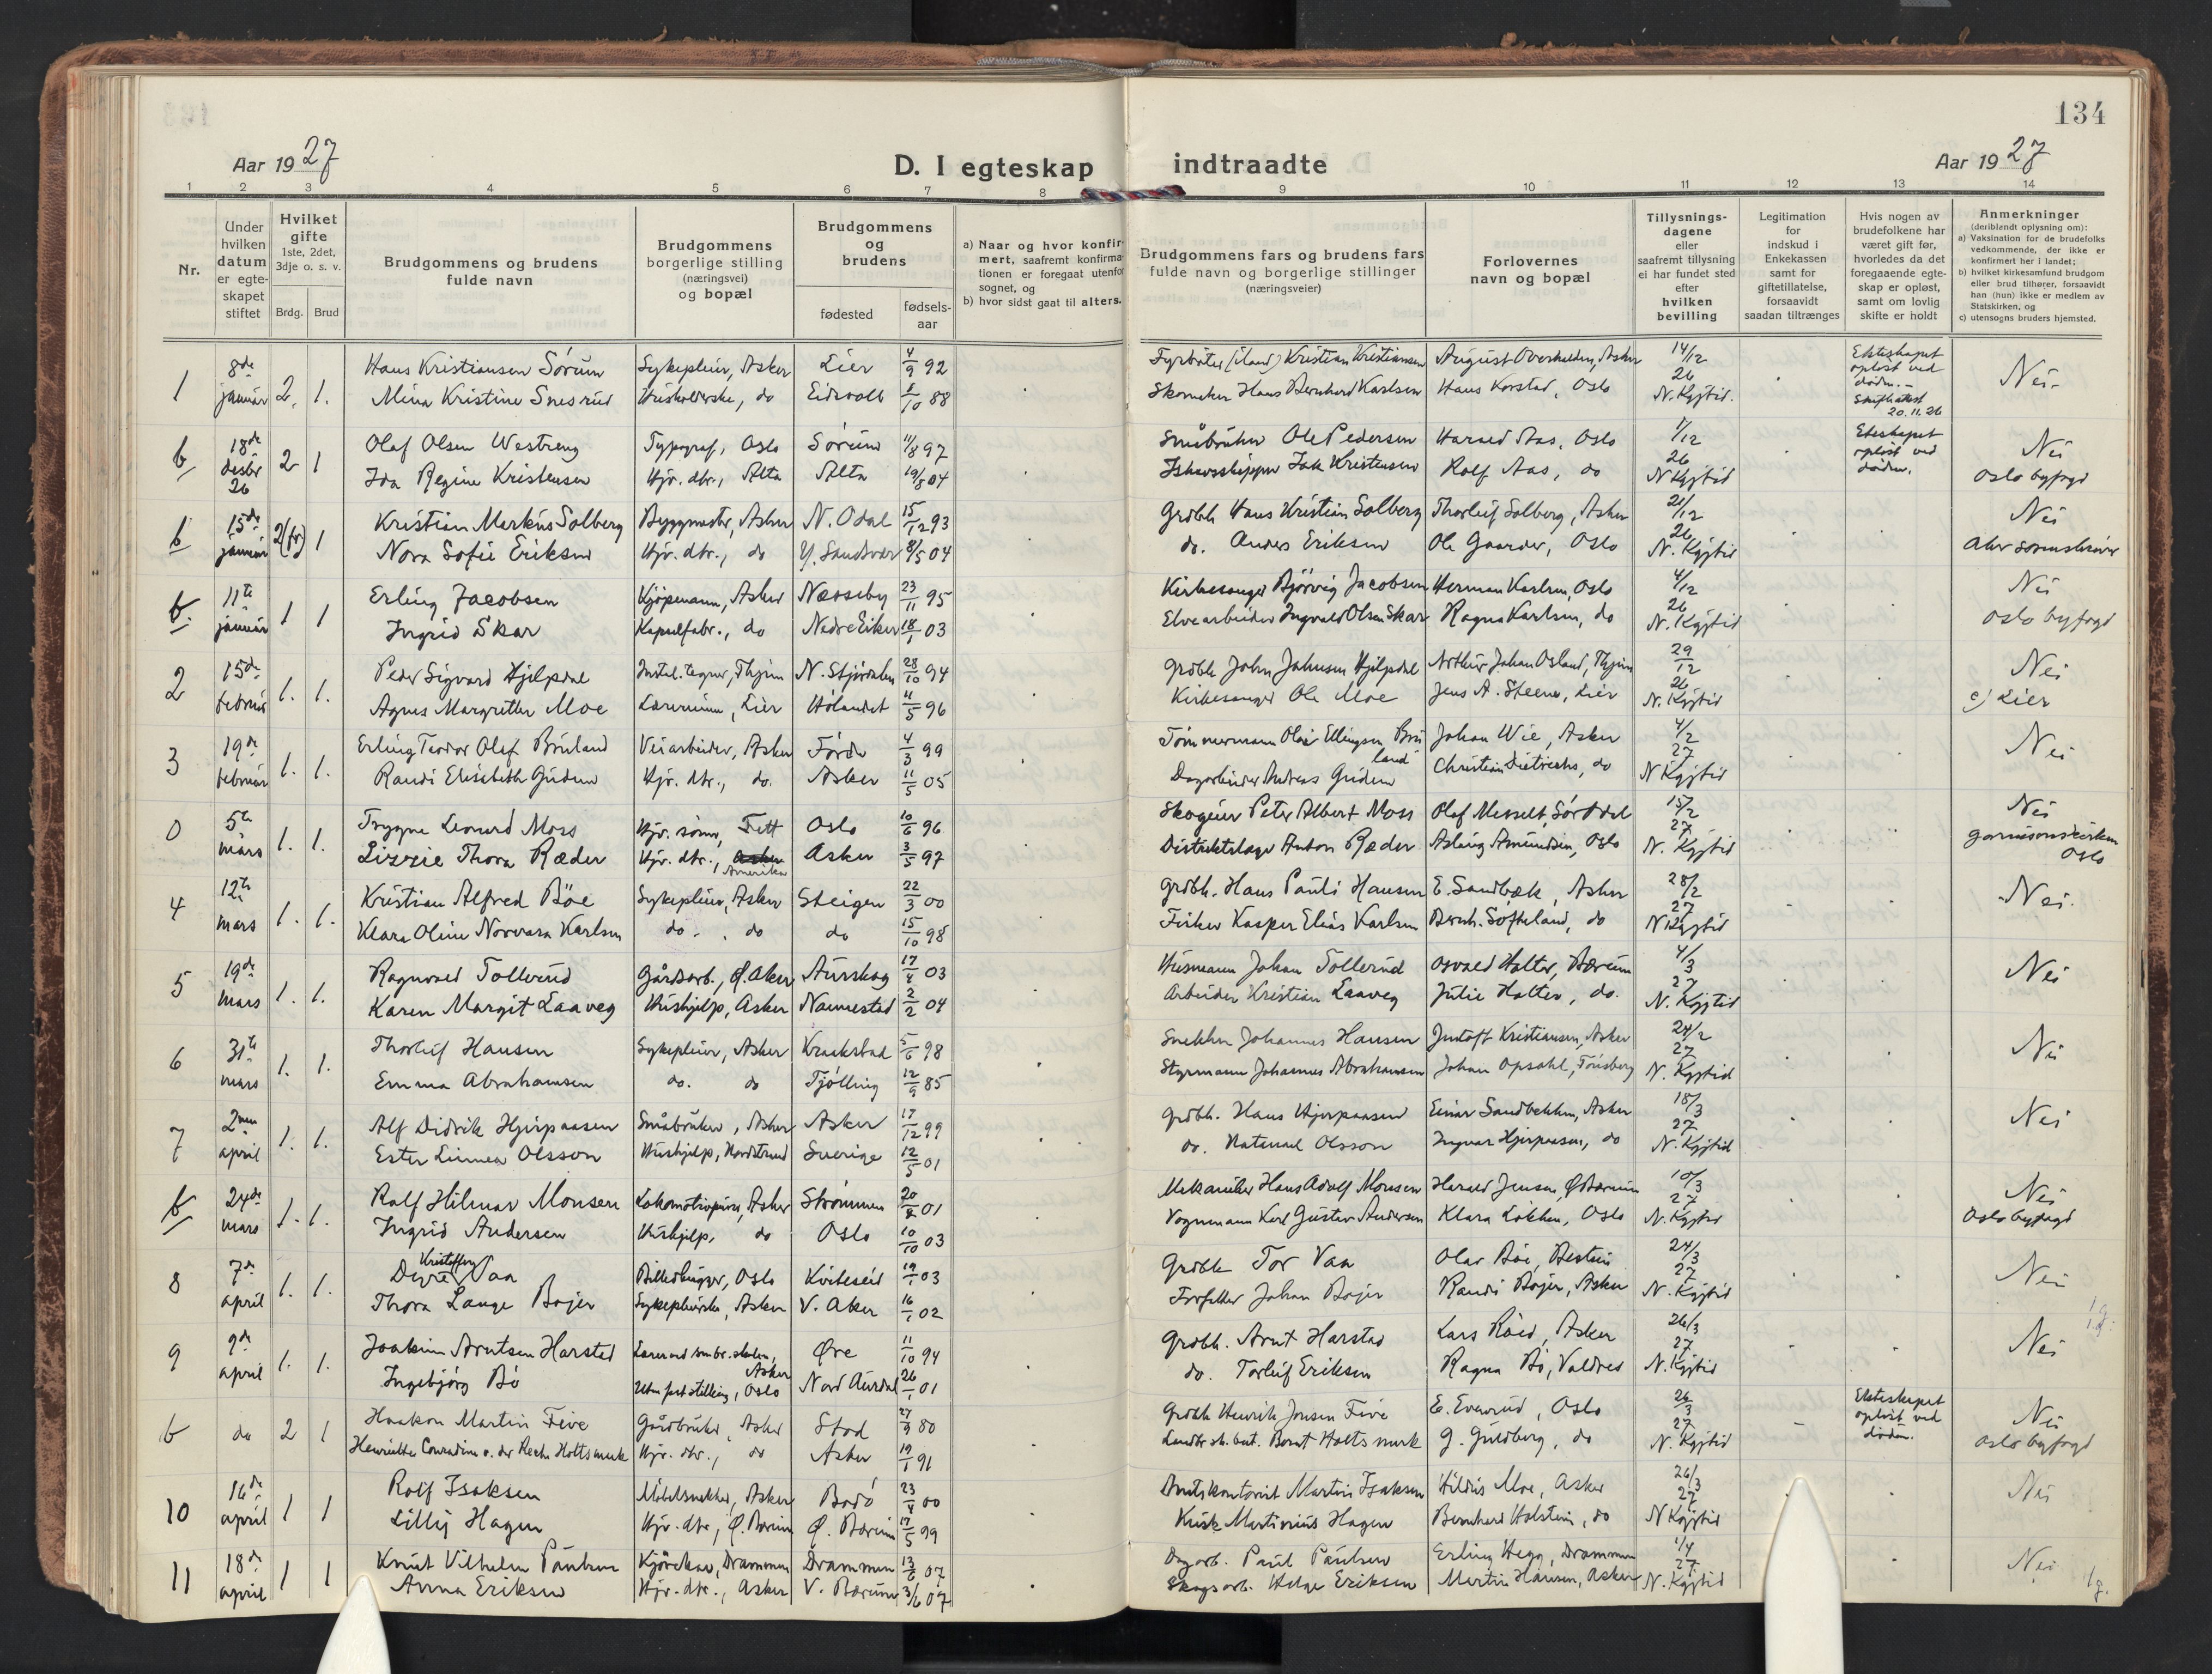 134
Aar 1927
D. I egteskap indtraadte
Aar 1927
1 2 3 4 5 6 7 8 9 10 11 12 13 14
Nr.
Under hvilken datum er egte-skapet stiftet
Hvilket gifte 1ste, 2det, 3dje o. s. v.
Brdg. Brud
Brudgommens og brudens fulde navn
Brudgommens borgerlige stilling (næringsvei) og bopæl
Brudgommens og brudens
fødested
fødsels-aar
a) Naar og hvor konfir-mert, saafremt konfirma-tionen er foregaat utenfor sognet, og
b) hvor sidst gaat til alters.
Brudgommens fars og brudens fars fulde navn og borgerlige stillinger (næringsveier)
Forlovernes navn og bopæl
Tillysnings-dagene eller saafremt tillysning ei har fundet sted efter hvilken bevilling
Legitimation for indskud i Enkekassen samt for giftetillatelse, forsaavidt saadan tiltrænges
Hvis nogen av brudefolkene har været gift før, hvorledes da det foregaaende egte-skap er opløst, samt om lovlig skifte er holdt
Anmerkninger (deriblandt oplysning om):
a) Vaksination for de brudefolks vedkommende, der ikke er konfirmert her i landet;
b) hvilket kirkesamfund brudgom eller brud tilhører, forsaavidt han (hun) ikke er medlem av Statskirken, og
c) utensogns bruders hjemsted.
1 8de januar 2. 1. Hans Kristiansen Sörum Sykepleier, Asker Lier 4/9 92 Kristian Kristiansen August Overhalden, Asker 14/12 26 Ekteskapet opløst ved døden. - Skifteattest 20.11.26 Nei
Mina Kristine Snesrud Husholderske, do Eidsvoll 5/10 88 Skomaker Hans Bernhard Karlsen Hans Korstad, Oslo N. Kgjtid.
b 18de desbr 26 2 1 Olaf Olsen Westreng Typograf, Oslo Sörum 11/8 97 Småbruker Ole Pedersen Harald Aas, Oslo 1/12 26 Ekteskapet opløst ved døden. Nei
Ida Regine Kristensen Hjv. dtr., Alta Alta 19/8 04 Ishavsskipper Isak Kristensen Rolf Aas, do N Kgjtid Oslo byfogd
b 15de januar 2(fr) 1 Kristian Markus Solberg Byggmester, Asker N. Odal 15/12 93 Grdbr. Hans Kristian Solberg Thorleif Solberg, Asker 21/12 26 Nei
Nora Sofie Eriksen Hjv. dtr., do Y. Sandsvær 8/5 04 do. Anders Eriksen Ole Gaarder, Oslo N. Kgjtid Aker sorenskriver
b. 11te januar 1 1 Erling Jacobsen Kjøpmann, Asker Nesseby 23/11 95 Kirkesanger Bjørvig Jacobsen Herman Karlsen, Oslo 4/12 26 Nei
Ingrid Skar Kapselfabr., do Nedre Eiker 18/1 03 Elvearbeider Ingvald Olsen Skar Ragna Karlsen, do N. Kgjtid Oslo byfogd
2 15de februar 1. 1. Peder Sigvard Hjelpdal N. Stjørdalen 28/10 94 Grdbr. John Johnsen Hjelpdal Arthur Johan Osland, 29/12 26 Nei
Agnes Margrethe Moe Lærerinne, Lier Hölandet 11/5 96 Kirkesanger Ole Moe Jens A. Steene, Lier N. Kgjtid c) Lier
3 19de februar 1. 1. Erling Teodor Olaf Bruland Veiarbeider, Asker Förde 4/3 99 Tömmermann Olai Ellingsen Bruland Johan Wie, Asker 4/2 27 Nei
Randi Elisabeth Gudem Hjv. dtr., do. Asker 11/5 05 Dagarbeider Andreas Gudem Christian Dietrichs, do N Kgjtid
0 5te mars 1. 1. Trygve Leonard Moss Hjv. sønn, Fett Oslo 10/6 96 Skogeier Peter Albert Moss Olaf Messelt, Sör Odal 15/2 27 Nei
Lizzie Thora Ræder Hjv. dtr., Amerika Asker 3/5 97 Distriktslæge Anton Ræder Aslaug Amundsen, Oslo N. Kgjtid Garnisonskirken Oslo
4 12te mars 1. 1. Kristian Alfred Böe Sykepleier, Asker Steigen 22/3 00 Grdbr. Hans Pauli Hansen E. Sandbæk, Asker 28/2 27 Nei.
Klara Oline Norvara Karlsen do. do do 15/10 98 Fisker Kasper Elias Karlsen Bernh. Softeland, do N. Kgjtid
5 19de mars 1. 1. Ragnvald Tollerud Gårdsarb., Ø. Aker Aurskog 17/4 03 Husmann Johan Tollerud Osvald Holter, Bærum 4/3 27 Nei
Karen Margit Laaveg Hushjelp, Asker Nannestad 2/2 04 Arbeider Kristian Laaveg Julie Holter, do. N. Kgjtid
6 31te mars 1. 1. Thorleif Hansen Sykepleier, Asker Kraakstad 5/6 98 Snekker Johannes Hansen Gustaft Kristiansen, Asker 24/2 27 Nei
Emma Abrahamsen do. do Tjölling 12/9 85 Styrmann Johannes Abrahamsen Johan Opsahl, Tönsberg N. Kgjtid
7 2nen april 1. 1. Alf Didrik Hjerpaasen Småbruker, Asker Asker 17/12 99 Grdbr. Hans Hjerpaasen Einar Sandbekken, Asker 18/3 27 Nei
Ester Linnea Olsson Hushjelp, Nordstrand Sverige 12/5 01 do. Natanael Olsson Ingvar Hjerpaasen, do N. Kgjtid
b 24de mars 1. 1. Ralf Hilmar Monsen Asker Strömmen 20/8 01 Mekaniker Hans Adolf Monsen Harald Jensen, Ø Bærum 10/3 27 Nei
Ingrid Andersen Hushjelp, do Oslo 10/10 03 Vognmann Karl Gustav Andersen Klara Løkken, Oslo N. Kgjtid Oslo byfogd
8 7de april 1. 1. Dyre Kristoffer Vaa Billedhugger, Oslo Kviteseid 19/1 03 Grdbr. Tor Vaa Olav Böe, Bestum 24/3 27 Nei
Thora Lange Bojer Sykepleierske, Asker V. Aker 16/1 02 Forfatter Johan Bojer Randi Bojer, Asker N. Kgjtid
9 9de april 1. 1. Joakim Arntsen Harstad Asker Øre 11/10 94 Grdbr. Arnt Harstad Lars Röed, Asker 26/3 27 Nei
Ingebjörg Bö Uten fast stilling, Oslo Nord Aurdal 26/1 01 do. Torleif Eriksen Ragna Bö, Valdres N. Kgjtid
b do 2 1 Haakon Martin Five Gårdbruker, Asker Stod 27/9 80 Grdbr. Henrik Jonsen Five E. Evensrud, Oslo 26/3 27 Ekteskapet opløst ved døden. Nei
Henriette Conradine v. der Recke Holtsmark Hjv. dtr., do Asker 19/1 91 Bernt Holtsmark G. Guldberg, do N. Kgjtid Oslo byfogd
10 16de april 1 1 Rolf Isaksen Möbelsnekker, Asker Bodö 23/4 00 Amtskontorist Martin Isaksen Hildur Moe, Asker 26/3 27 Nei
Lilly Hagen Hjv. dtr, Ø. Bærum Ø. Bærum 17/5 99 Kusk Martinius Hagen Bernhard Holstein, do N Kgjtid
11 18de april 1 1 Knut Vilhelm Paulsen Drammen Drammen 13/6 07 Dagarb. Paul Paulsen Erling Hegg, Drammen 1/4 27 Nei
Anna Eriksen Hjv. dtr., Asker V. Bærum 3/6 07 Skogsarb. Helge Eriksen Martin Hansen, Asker N. Kgjtid 1g.